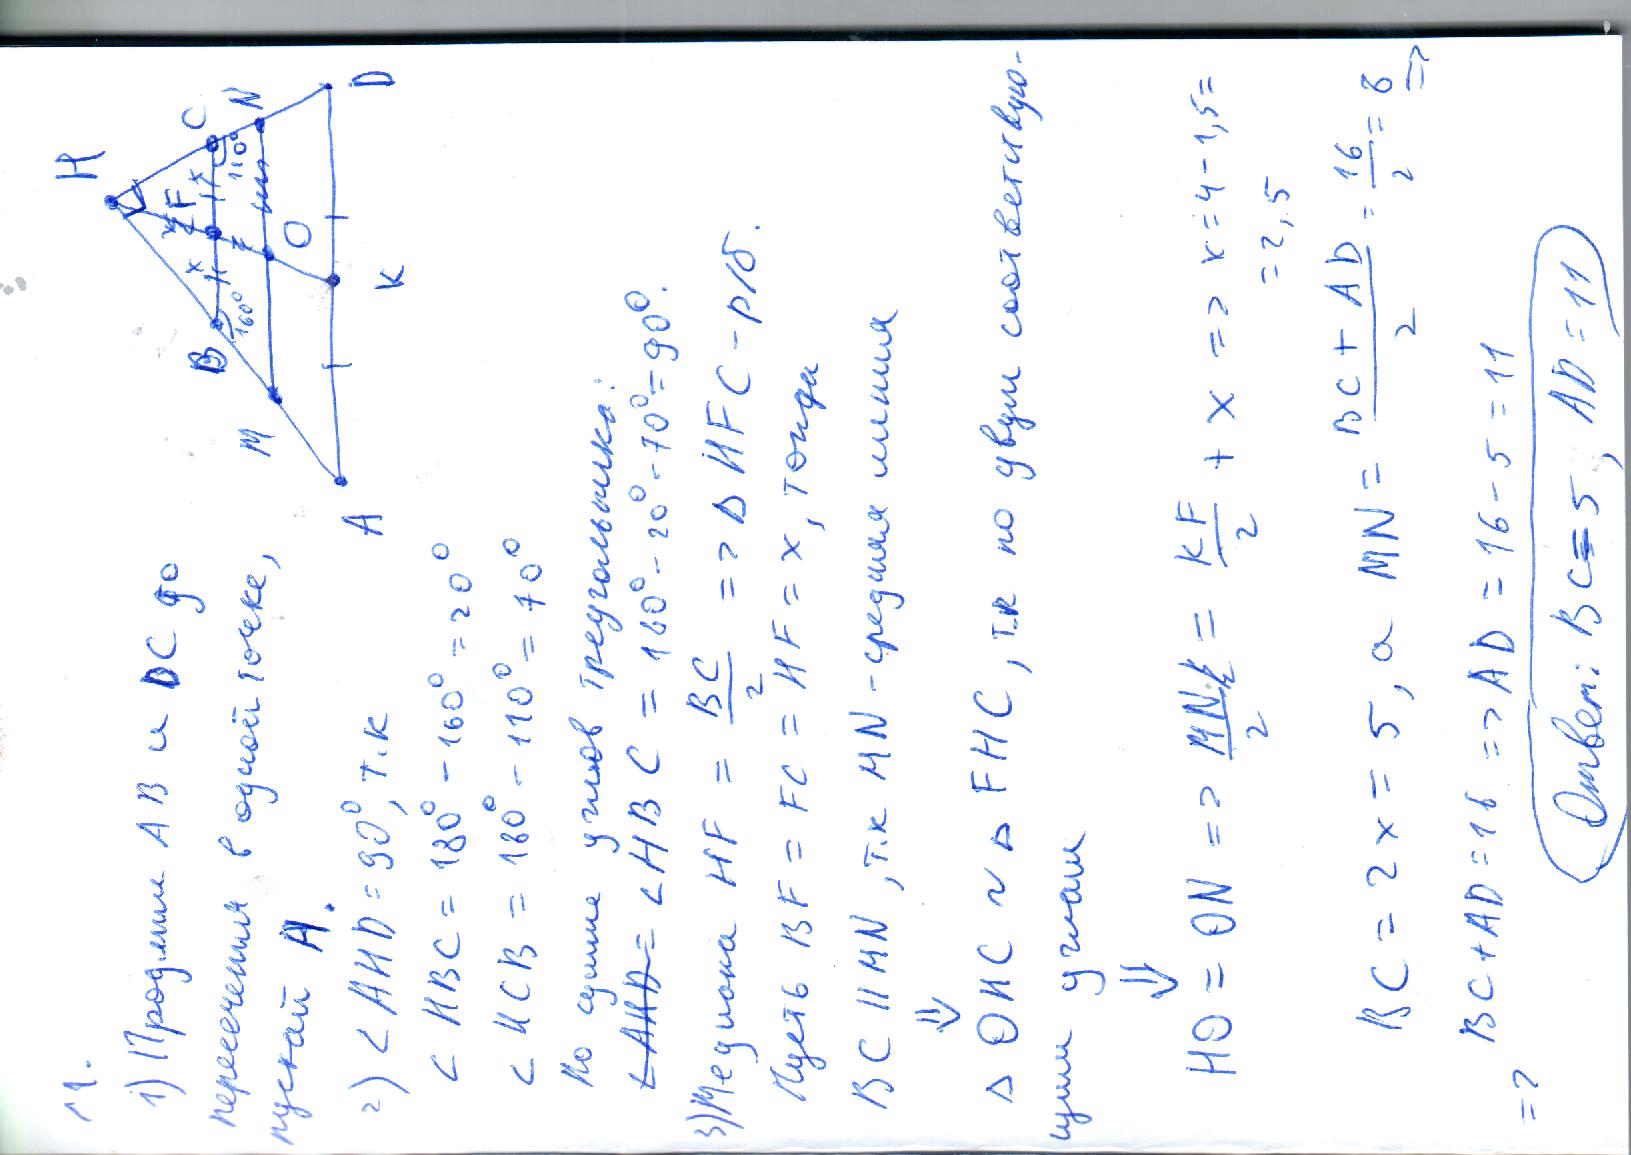 1.
H
B
C
160°
110°
x
x
F
M
N
O
A
K
D
1) Продлим AB и DC до
пересечения в одной точке,
пускай H.
2) <AHD = 90°, т.к
<HBC = 180° - 160° = 20°
<HCB = 180° - 110° = 70°
По сумме углов треугольника:
<AHD = <HBC = 180° - 20° - 70° = 90°.
3) Медиана HF = BC/2 => Δ HFC - р/б.
Пусть BF = FC = HF = x, тогда
BC || MN, т.к MN - средняя линия
⇓
Δ OHC ~ Δ FHC, т.к по двум соответствую-
щим углам
⇓
HO = ON => MN/2 = KF/2 + x => x = 4 - 1,5 =
= 2,5
BC = 2x = 5, а MN = BC + AD/2 = 16/2 = 8 =>
=> BC + AD = 16 => AD = 16 - 5 = 11
Ответ: BC = 5, AD = 11